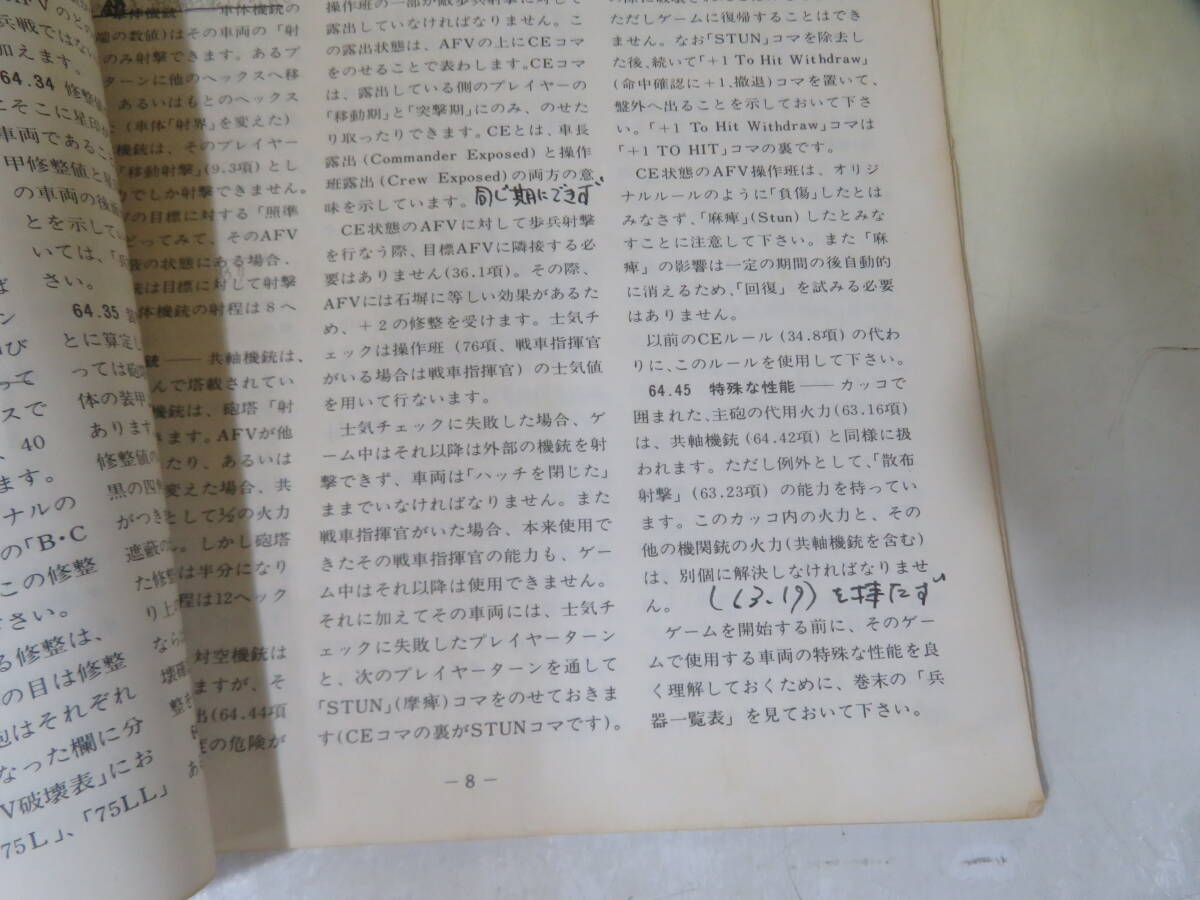 AFVのとの
兵戦ではない
加えます。
64.34 修整値
こそこに星印が
車両であること
甲修整値と
の車両の後
とを示してい
いては、「兵
さい。
64.35
とに算定し
っては砲
体の装甲
あります
修整値の
黒の四
がつき
遮蔽の
た修整
り上
なら
壊確
整を
ば
ン
って
スで
、40
ます。
ナルの
の「B・C
この修整
ださい。
る修整は、
の目は修整
砲はそれぞれ
なった欄に分
V破壊表」にお
75L」、「75LL」
車体機銃 —— 車体機銃の
端の数値)はその車両の「射
のみ射撃できます。あるプ
ターンに他のヘックスへ移
、あるいはもとのヘックス
(車体「射界」を変えた)
機銃は、そのプレイヤー
「移動射撃」(9.3項)とし
でしか射撃できません。
の目標に対する「照準
どってみて、そのAFV
の状態にある場合、
銃は目標に対して射撃
体機銃の射程は8ヘ
銃 —— 共軸機銃は、
んで塔載されてい
機銃は、砲塔「射
きます。AFVが他
たり、あるいは
変えた場合、共
として½の火力
。しかし砲塔
は半分になり
程は12ヘック
対空機銃は
ますが、そ
出(64.44項
の危険が
操作班の一部が敵歩兵射撃に対して
露出していなければなりません。こ
の露出状態は、AFVの上にCEコマ
をのせることで表わします。CEコマ
は、露出している側のプレイヤーの
「移動期」と「突撃期」にのみ、のせた
り取ったりできます。CEとは、車長
露出(Commander Exposed)と操作
班露出(Crew Exposed)の両方の意
味を示しています。同じ期にできず
CE状態のAFVに対して歩兵射撃
を行なう際、目標AFVに隣接する必
要はありません(36.1項)。その際、
AFVには石塀に等しい効果があるた
め、+2の修整を受けます。士気チ
ェックは操作班(76項、戦車指揮官
がいる場合は戦車指揮官)の士気値
を用いて行ないます。
士気チェックに失敗した場合、ゲ
ーム中はそれ以降は外部の機銃を射
撃できず、車両は「ハッチを閉じた」
ままでいなければなりません。また
戦車指揮官がいた場合、本来使用で
きたその戦車指揮官の能力も、ゲー
ム中はそれ以降は使用できません。
それに加えてその車両には、士気チ
ェックに失敗したプレイヤーターン
と、次のプレイヤーターンを通して
「STUN」(摩痺)コマをのせておきま
す(CEコマの裏がSTUNコマです)。
ただしゲームに復帰することはでき
ません。なお「STUN」コマを除去し
た後、続いて「+1 To Hit Withdraw」
(命中確認に+1、撤退)コマを置いて、
盤外へ出ることを示しておいて下さ
い。「+1 To Hit Withdraw」コマは
「+1 TO HIT」コマの裏です。
CE状態のAFV操作班は、オリジ
ナルルールのように「負傷」したとは
みなさず、「麻痺」(Stun)したとみな
すことに注意して下さい。また「麻
痺」の影響は一定の期間の後自動的
に消えるため、「回復」を試みる必要
はありません。
以前のCEルール(34.8項)の代わ
りに、このルールを使用して下さい。
64.45 特殊な性能 —— カッコで
囲まれた、主砲の代用火力(63.16項)
は、共軸機銃(64.42項)と同様に扱
われます。ただし例外として、「散布
射撃」(63.23項)の能力を持ってい
ます。このカッコ内の火力と、その
他の機関銃の火力(共軸機銃を含む)
は、別個に解決しなければなりませ
ん。
ゲームを開始する前に、そのゲー
ムで使用する車両の特殊な性能を良
く理解しておくために、巻末の「兵
器一覧表」を見ておいて下さい。
— 8 —